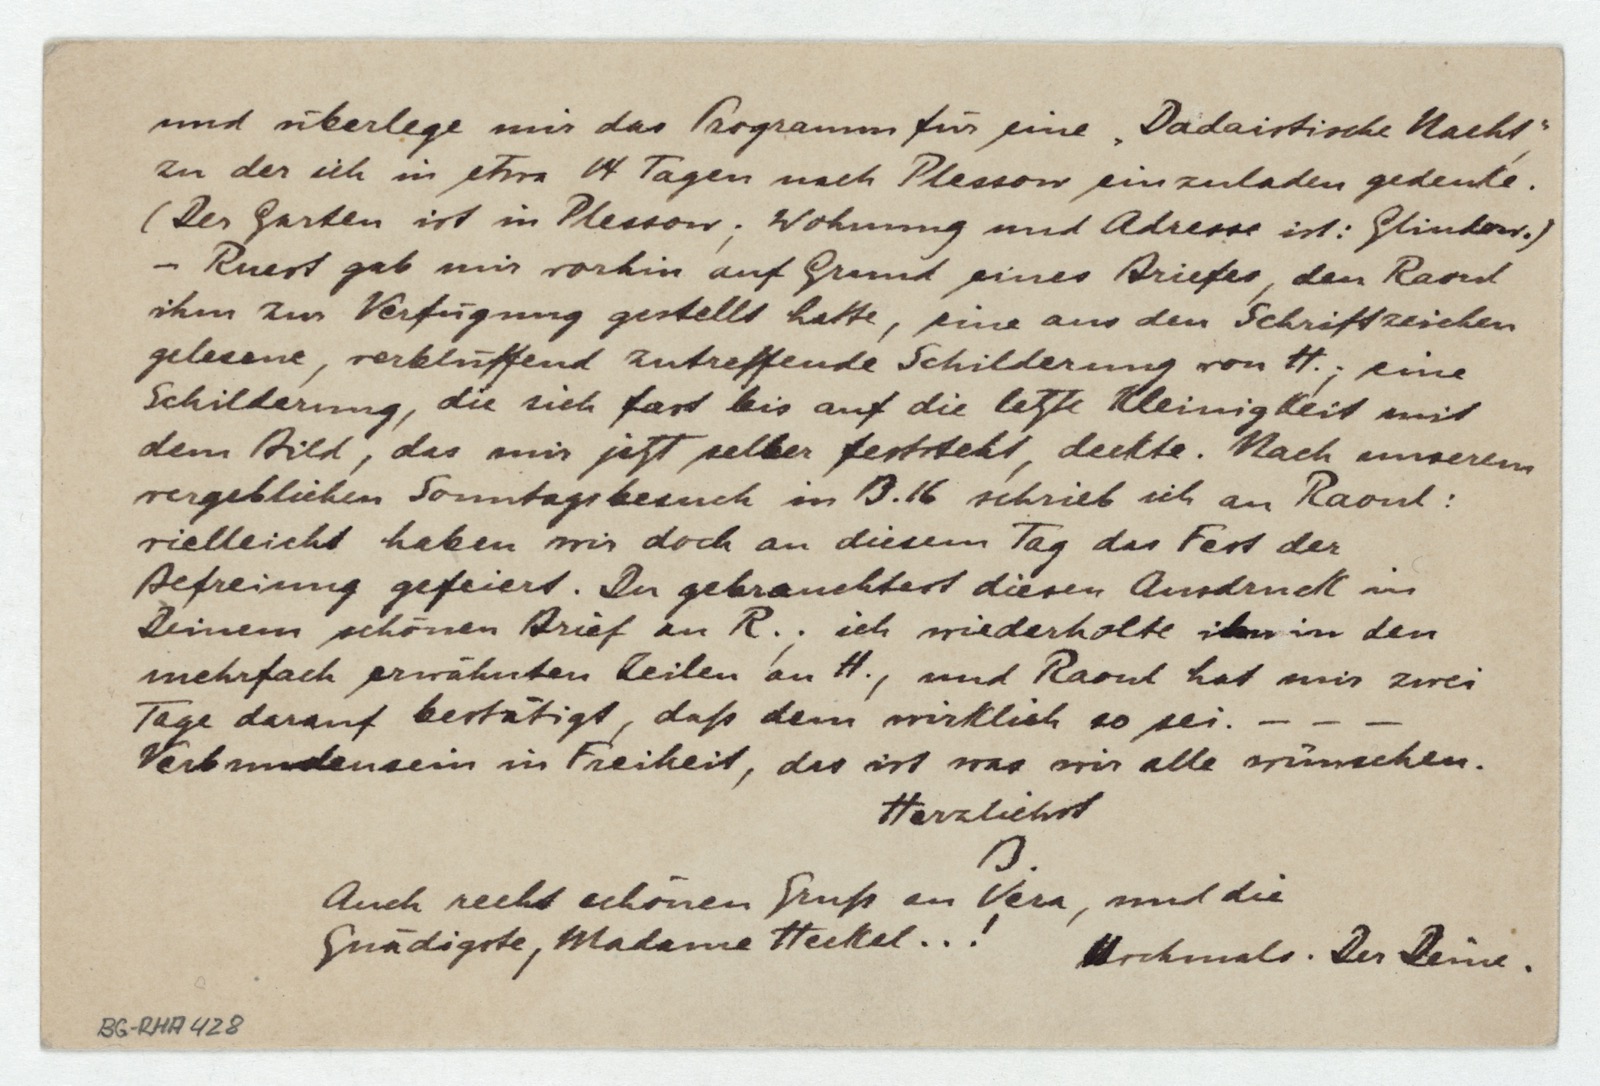 und überlege mir das Programm für eine „Dadaistische Nacht“,
zu der ich in etwa 14 Tagen nach Plessow einzuladen gedenke.
(Der Garten ist in Plessow; Wohnung und Adresse ist: Glindow.)
– Ruest gab mir vorhin auf Grund eines Briefes, den Raoul
ihm zur Verfügung gestellt hatte, eine aus den Schriftzeichen
gelesene, verblüffend zutreffende Schilderung von H.; eine
Schilderung, die sich fast bis auf die letzte Kleinigkeit mit
dem Bild, das mir jetzt selber feststeht, deckte. Nach unserem
vergeblichen Sonntagsbesuch in B.16 schrieb ich an Raoul:
vielleicht haben wir doch an diesem Tag das Fest der
Befreiung gefeiert. Du gebrauchtest diesen Ausdruck in
Deinem schönen Brief an R.; ich wiederholte ihn in den
mehrfach erwähnten Zeilen an H., und Raoul hat mir zwei
Tage darauf bestätigt, daß dem wirklich so sei. – – –
Verbundensein in Freiheit, das ist was wir alle wünschen.
Herzlichst
B.
Auch recht schönen Gruß an Vera, und die
Gnädigste, Madame Heckel...!
Nochmals. Der Deine.
BG-RHA 428